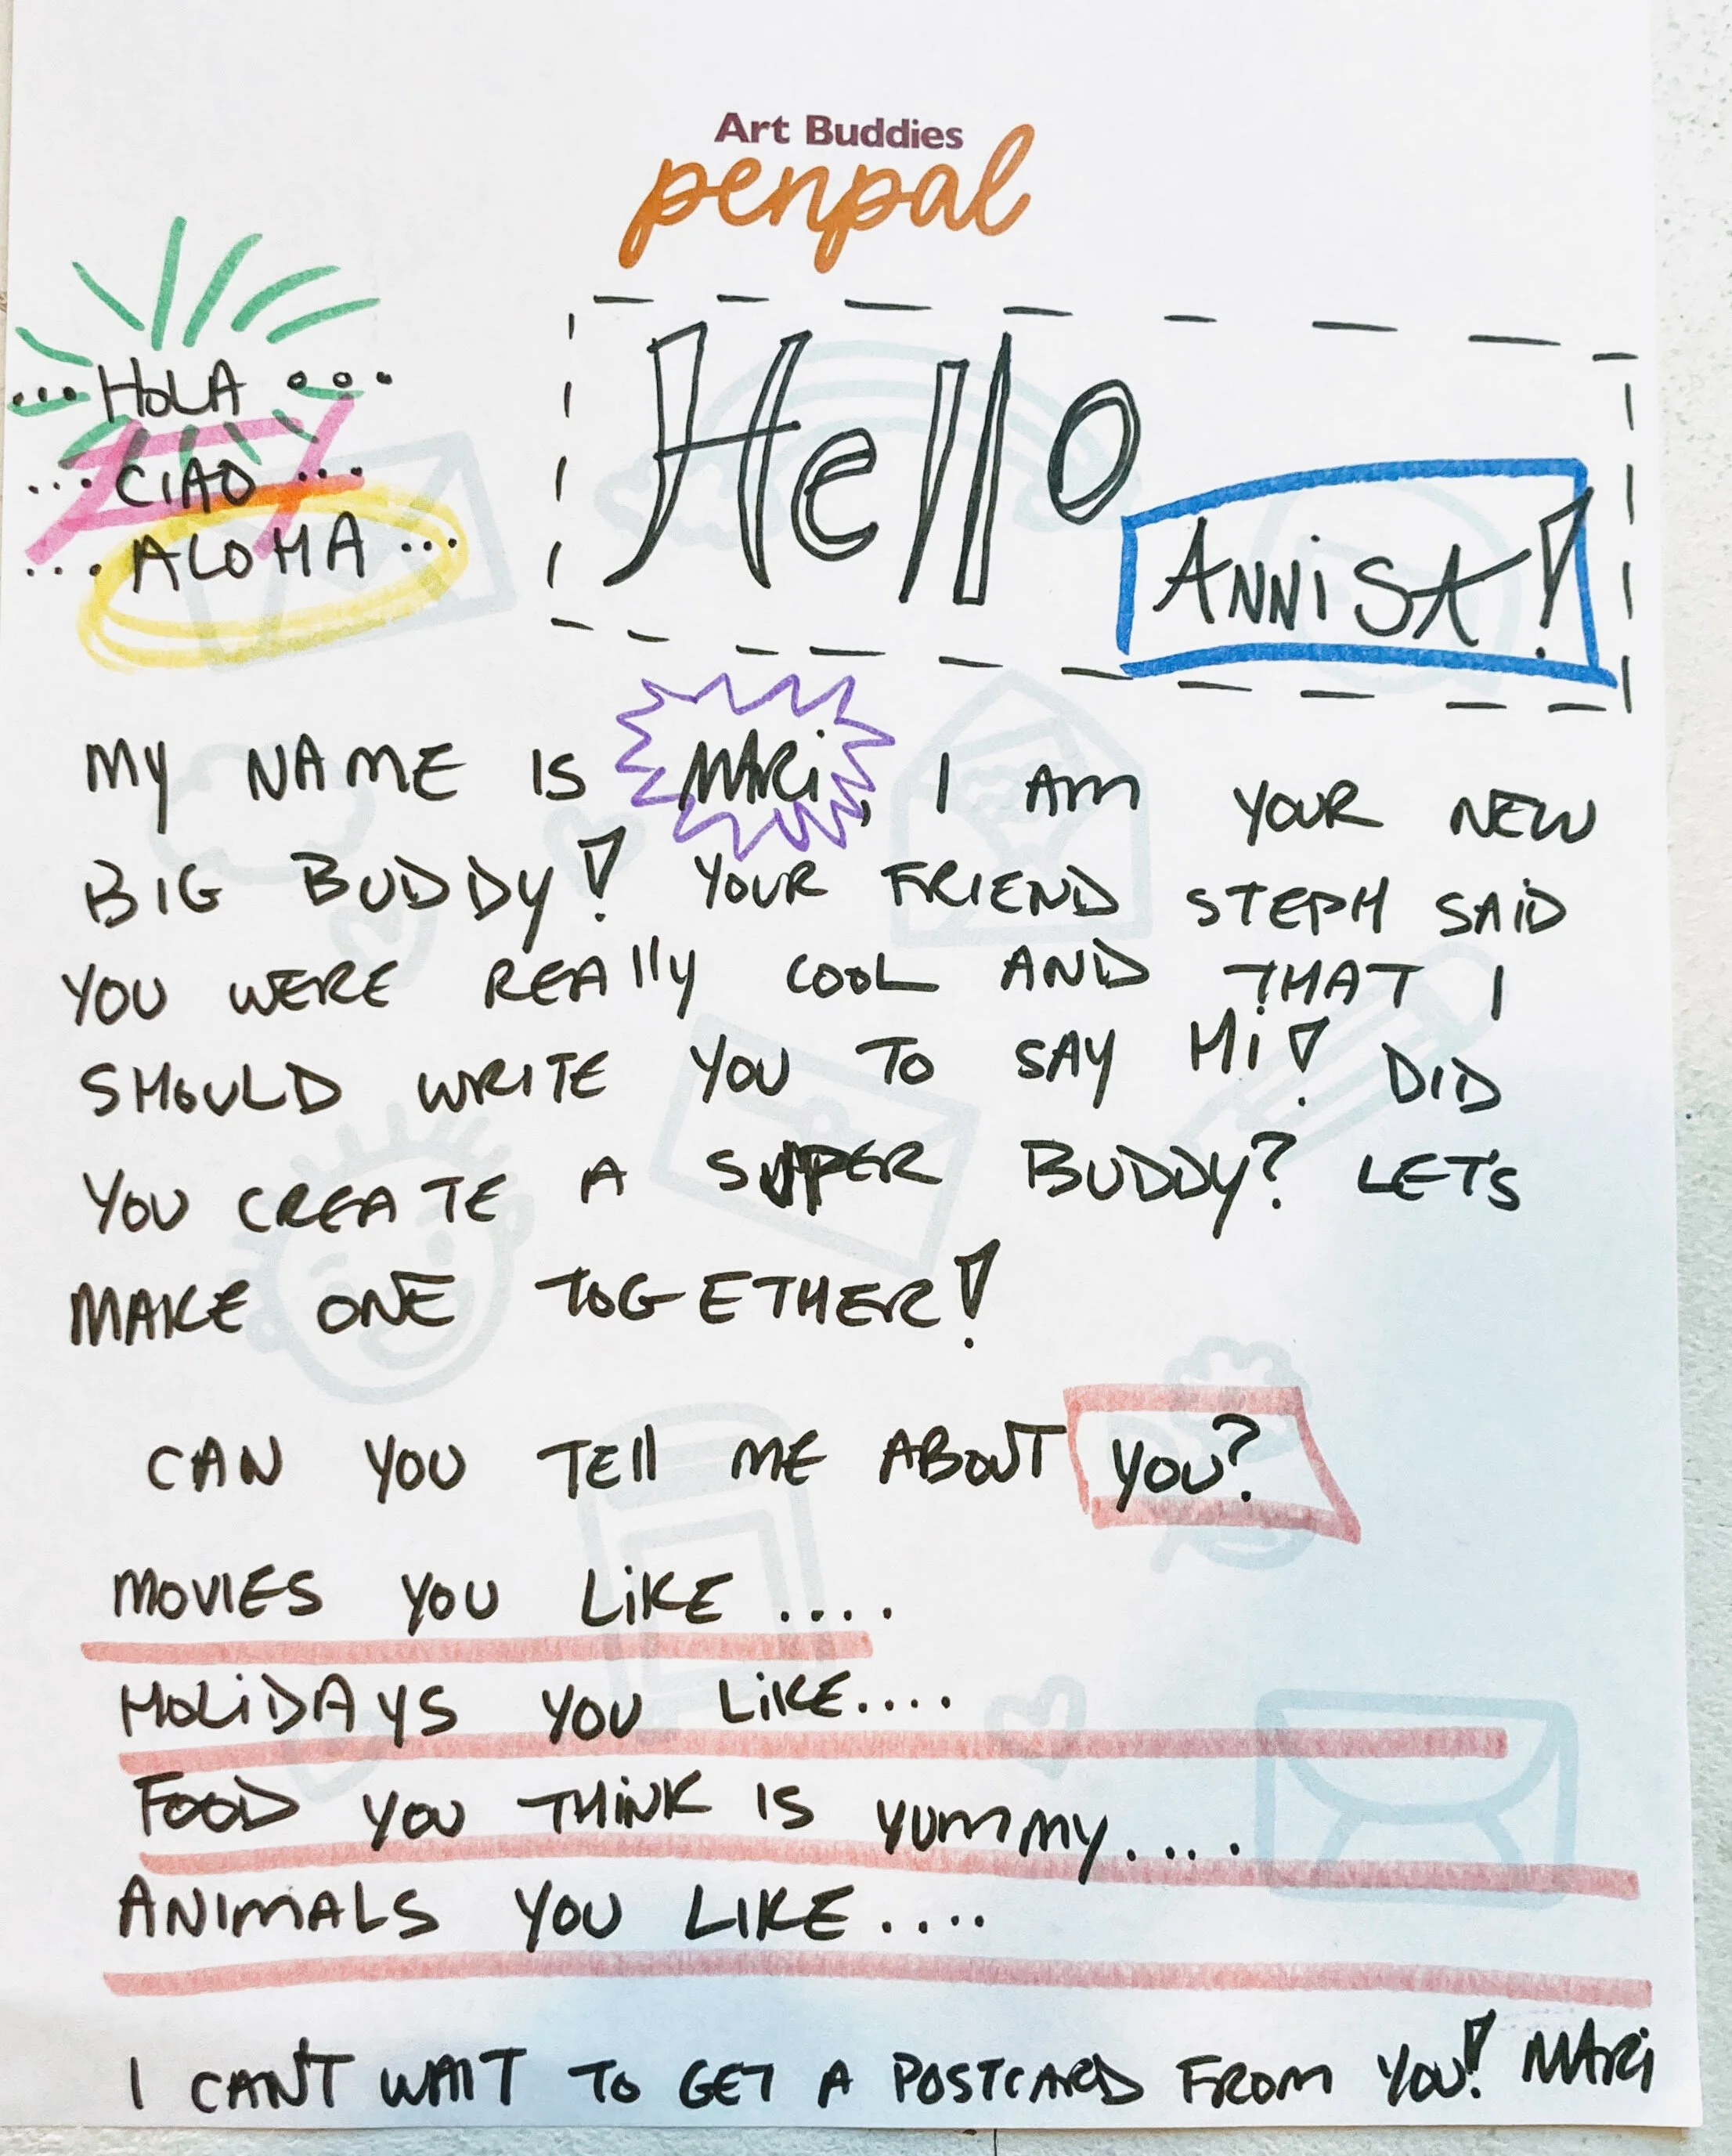 Art Buddies
penpal
... HOLA ...
... CIAO ...
... ALOHA ...
Hello
ANNISA!
MY NAME IS MARi, I AM YOUR NEW
BIG BUDDY! YOUR FRIEND STEPH SAID
YOU WERE REAlly COOL AND THAT I
SHOULD WRITE YOU TO SAY Hi! DID
YOU CREATE A SUPER BUDDY? LET'S
MAKE ONE TOGETHER!
CAN YOU TEll ME ABOUT YOU?
MOVIES YOU LiKE ....
HOLiDAYS YOU LiKE....
FOOD YOU THiNK IS YUMMY....
ANIMALS YOU LIKE....
I CAN'T WAIT TO GET A POSTCARD FROM YOU! MARi